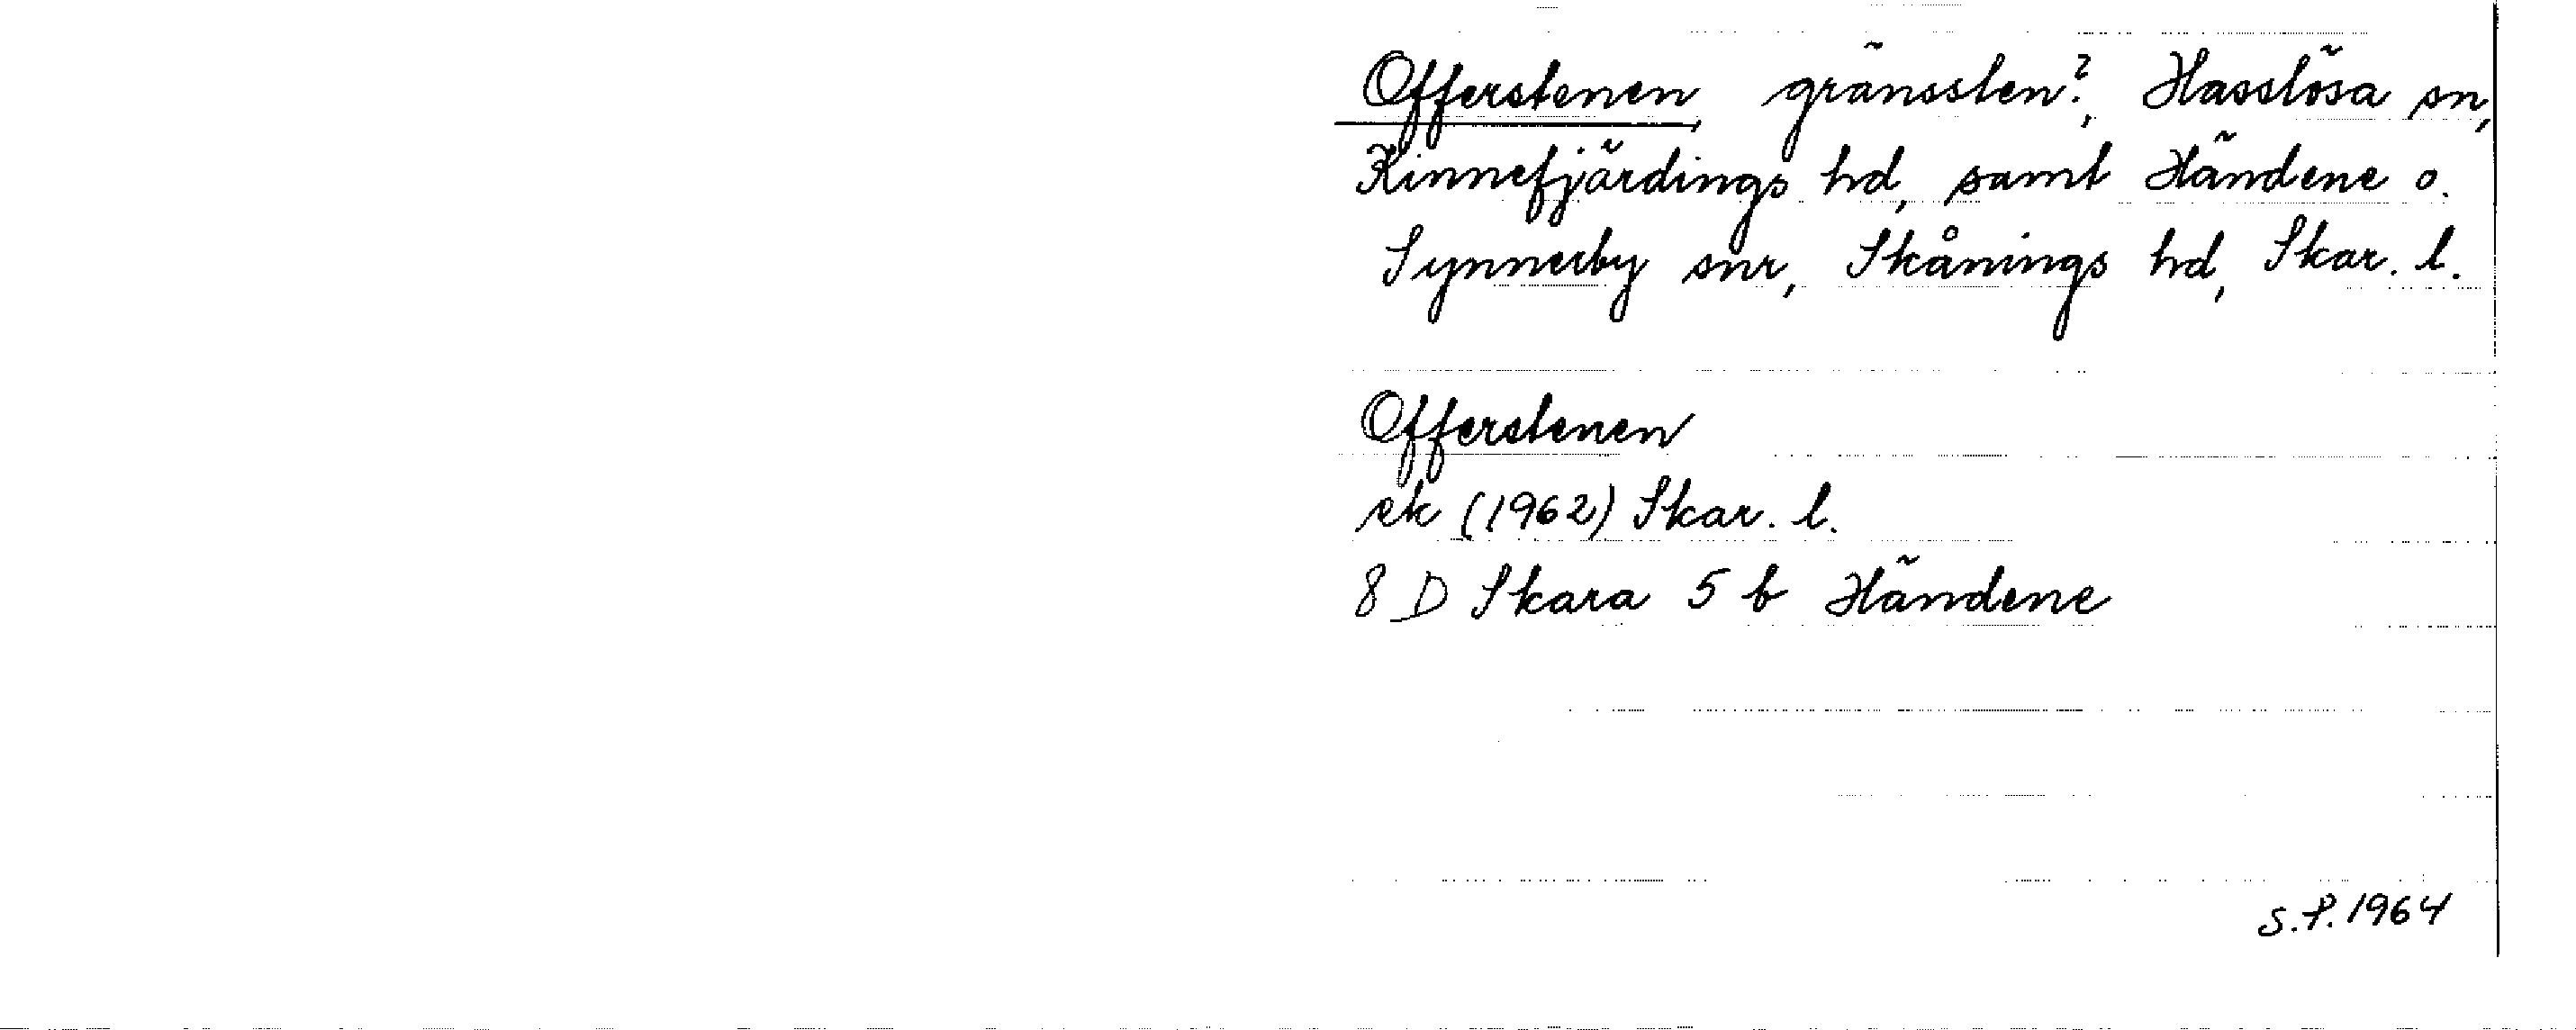 Offerstenen, gränssten?, Hasslösa sn,
Kinnefjärdings hd, samt Händene o.
Synnerby snr, Skånings hd, Skar. l.
Offerstenen
ek (1962) Skar. l.
8 D Skara 5 b Händene
S.P. 1964